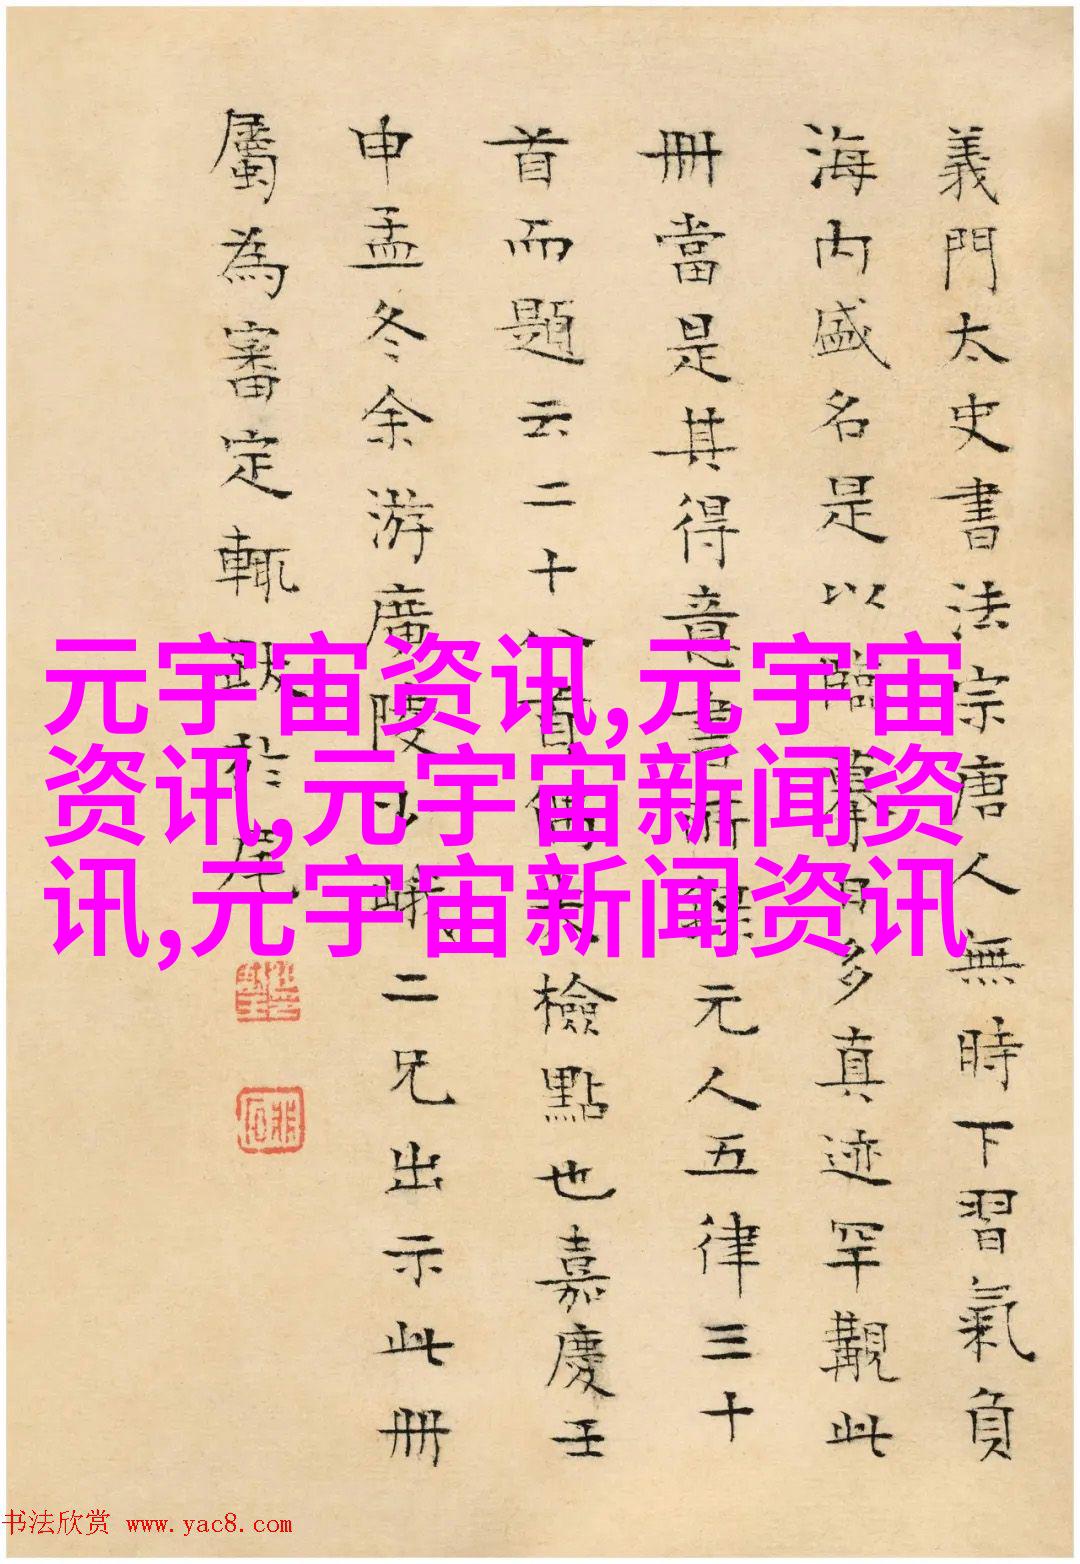 義門太史書法宗唐人無時下習氣負
海内盛名是以臨摹日多真迹罕覯此
冊當是其得意書所錄元人五律三十
首而題云二十八首偶失檢點也嘉慶壬
申孟冬余游廣陵小峨二兄出示此冊
屬為審定輒跋於尾
元宇宙资讯,元宇宙
资讯,元宇宙新闻资
讯,元宇宙新闻资讯
书法欣赏 www.yac8.com